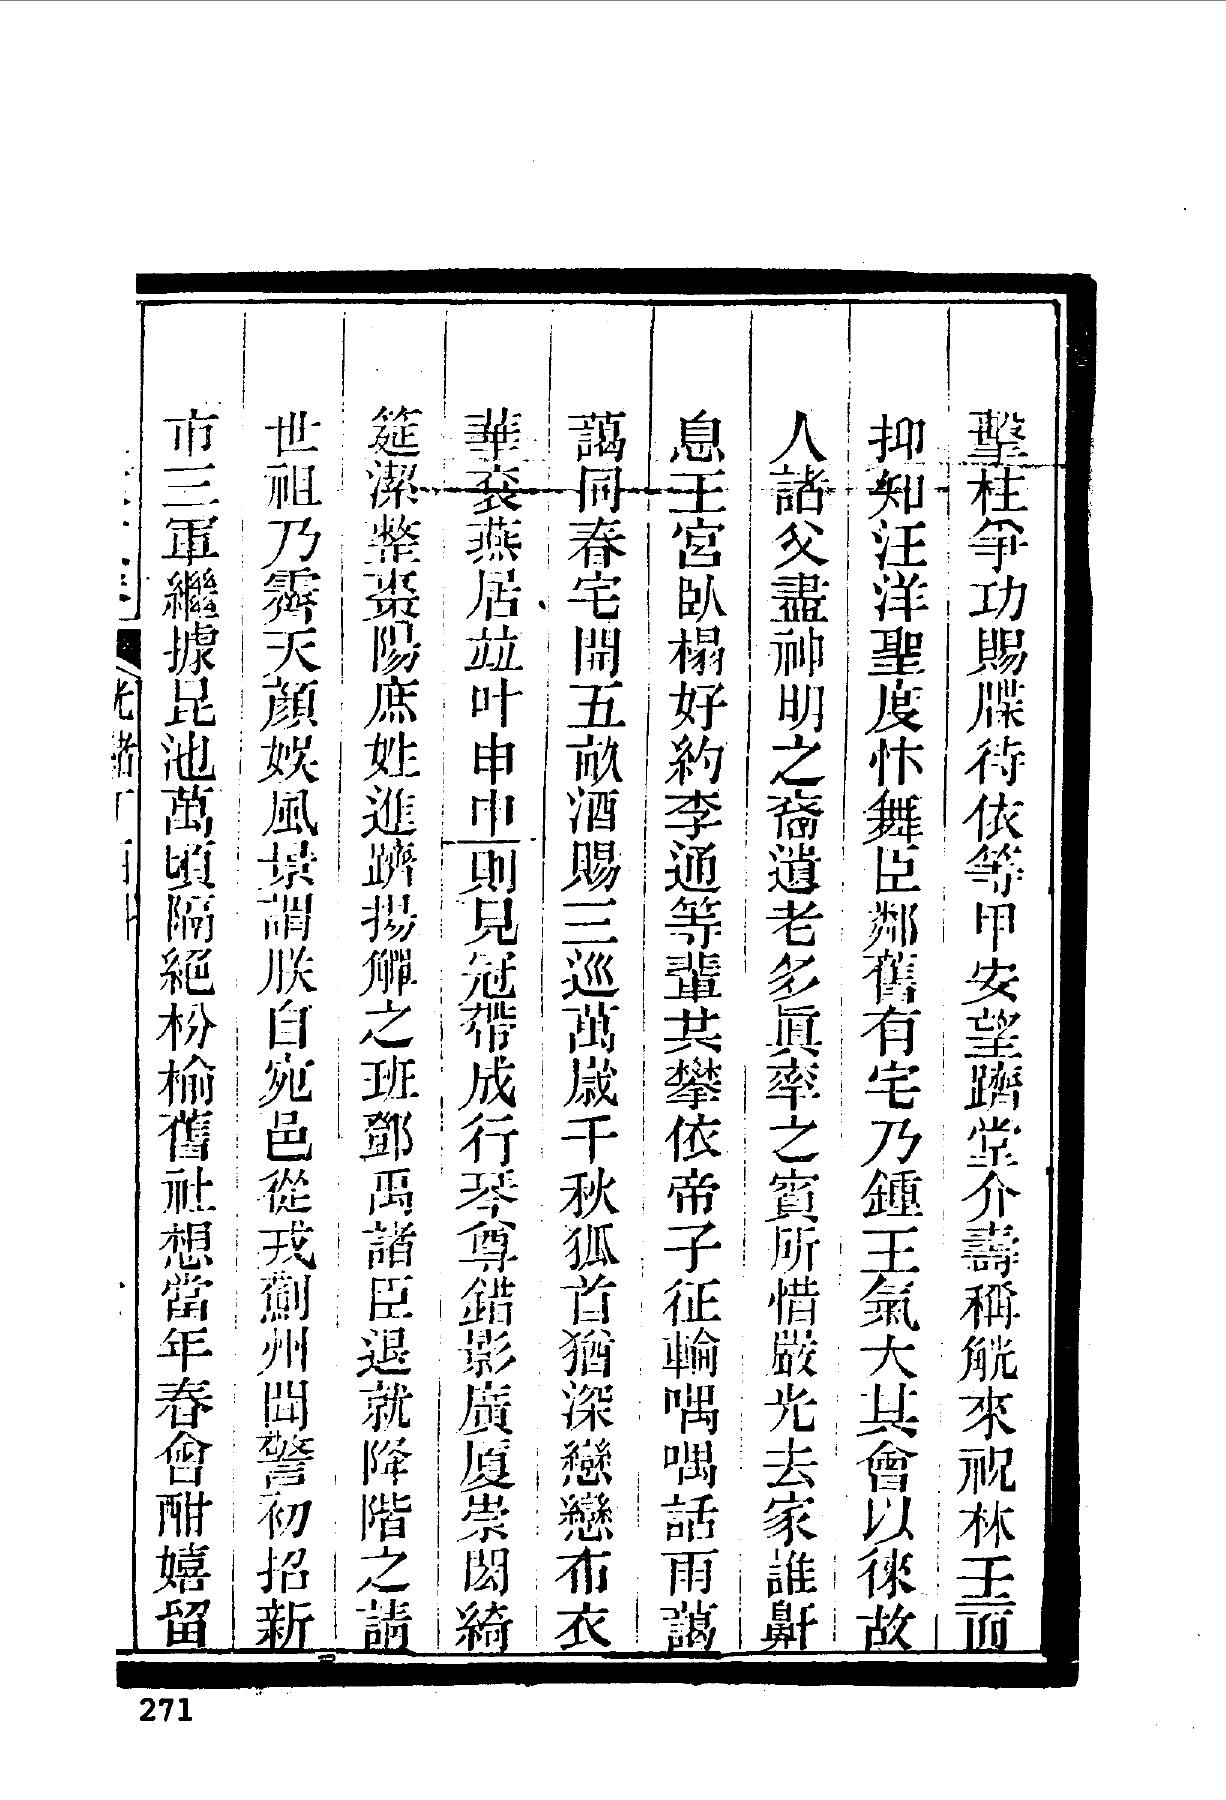 擊柱爭功賜牒待依等甲安望躋堂介壽稱觥來祝林壬而
抑知汪洋聖度忭舞臣鄰舊有宅乃鍾王氣大其會以徠故
人諸父盡神明之裔遺老多眞率之賓所惜嚴光去家誰鼾
息王宮臥榻好約李通等輩共攀依帝子征輪喁喁話雨藹
藹同春宅開五畝酒賜三巡萬歲千秋狐首猶深戀戀布衣
華衮燕居竝叶申申則見冠帶成行琴尊錯影廣厦崇閎綺
筵潔整棗陽庶姓進躋揚觶之班鄧禹諸臣退就降階之請
世祖乃霽天顔娛風景謂朕自宛邑從戎薊州聞警初招新
市三軍繼據昆池萬頃隔絕枌榆舊社想當年春會酣嬉留
光緒丁酉科
271